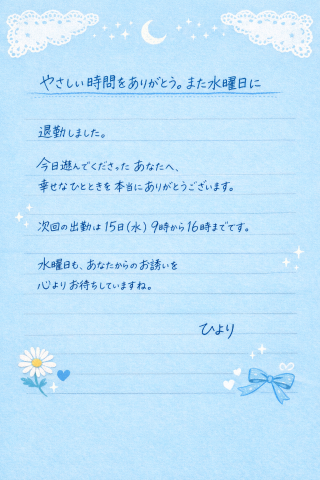 やさしい時間をありがとう。また水曜日に
退勤しました。
今日遊んでくださった あなたへ、
幸せなひとときを本当にありがとうございます。
次回の出勤は 15日(水) 9時から16時までです。
水曜日も、あなたからのお誘いを
心よりお待ちしていますね。
ひより